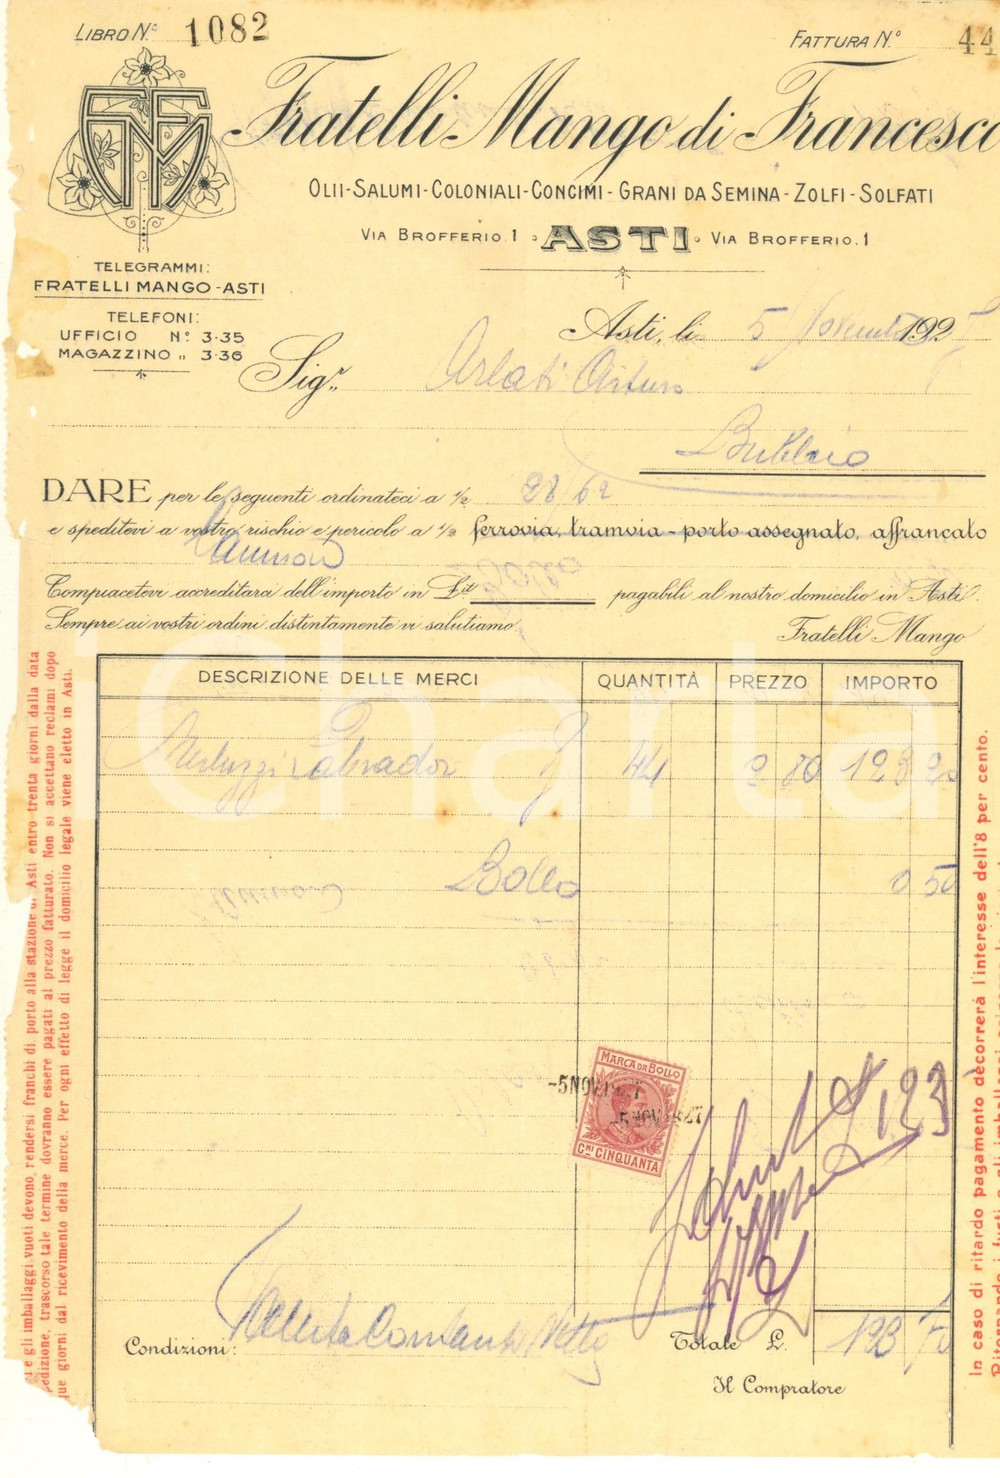 LIBRO N.° 1082
FATTURA N.° 44
FMF
Fratelli Mango di Francesco
OLII-SALUMI-COLONIALI-CONCIMI-GRANI DA SEMINA-ZOLFI-SOLFATI
VIA BROFFERIO.1 ASTI VIA BROFFERIO.1
TELEGRAMMI:
FRATELLI MANGO-ASTI
TELEFONI:
UFFICIO N° 3-35
MAGAZZINO „ 3-36
Asti, li 5 Novembre 192
Sigr. Arlati Arturo
Bubbio
DARE per le seguenti ordinateci a ½ 28/62
e speditevi a vostro rischio e pericolo a ½ ferrovia, tramvia - porto assegnato, affrancato
Camion
Compiacetevi accreditarci dell'importo in Lit pagabili al nostro domicilio in Asti.
Sempre ai vostri ordini distintamente vi salutiamo.
Fratelli Mango
DESCRIZIONE DELLE MERCI QUANTITÀ PREZZO IMPORTO
Merluzzi Labrador 44 2 80 123 20
Bollo 0 50
MARCA DA BOLLO
-5 NOV 1927
-5 NOV 1927
CMI CINQUANTA
123
Condizioni: Contanti Netto
Totale L. 123 70
Il Compratore
i e gli imballaggi vuoti devono rendersi franchi di porto alla stazione di Asti entro trenta giorni dalla data
pedizione, trascorso tale termine dovranno essere pagati al prezzo fatturato. Non si accettano reclami dopo
que giorni dal ricevimento della merce. Per ogni effetto di legge il domicilio legale viene eletto in Asti.
In caso di ritardo pagamento decorrerà l'interesse dell'8 per cento.
Charta